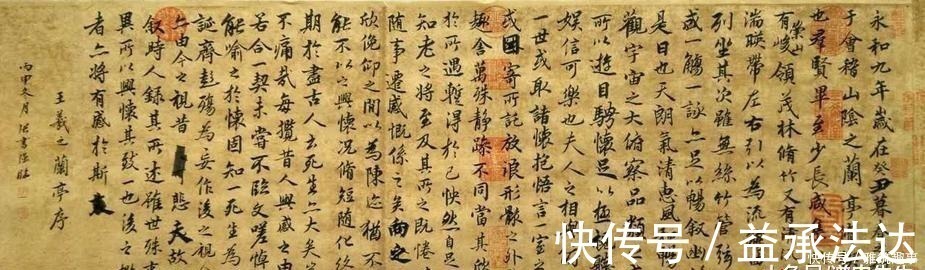 永和九年歲在癸丑暮春
于會稽山陰之蘭亭
也羣賢畢至少長咸
有崇山峻領茂林脩竹又有
湍暎帶左右引以為流
列坐其次雖無絲竹管
盛一觴一詠亦足以暢叙幽
是日也天朗氣清惠風
觀宇宙之大俯察品類
所以遊目騁懷足以極視
娛信可樂也夫人之相與
一世或取諸懷抱悟言一室
或因寄所託放浪形骸之外
趣舍萬殊静躁不同當其欣
於所遇暫得於己怏然自足
知老之將至及其所之既惓
隨事遷感慨係之矣向之
欣俛仰之間以為陳迹猶不
能不以之興懷況脩短隨化終
期於盡古人云死生亦大矣
不痛哉每攬昔人興感之由
若合一契未嘗不臨文嗟悼
能喻之於懷固知一死生為
誕齊彭殤為妄作後之視
亦由今之視昔悲夫故
叙時人錄其所述雖世殊事
異所以興懷其致一也後之
者亦將有感於斯文
王羲之蘭亭序
丙申冬月
快传号／益承法达